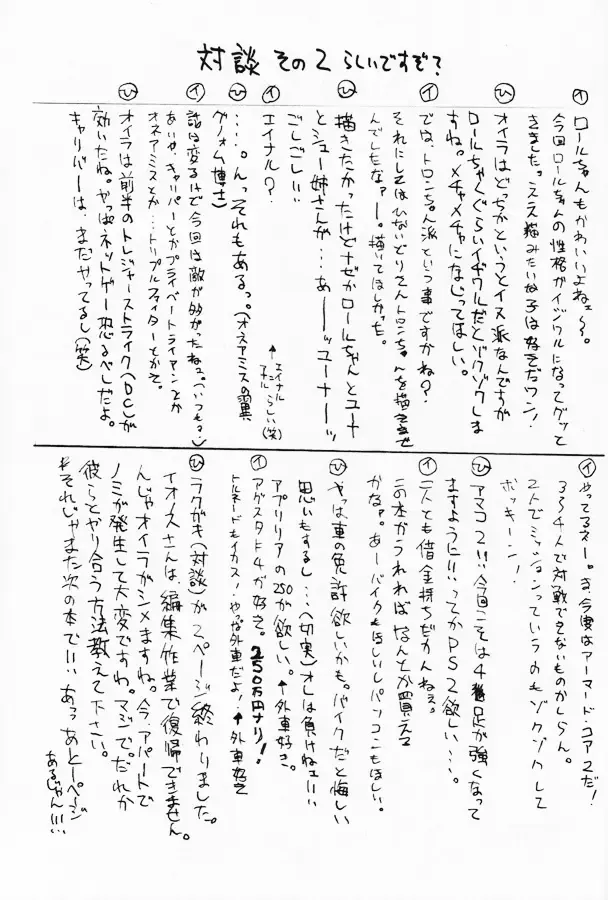 対談 その2 らしいですぞ?
イ ロールちゃんもかわいいよねェ〜〜。
今回ロールちゃんの性格がイジワルになってグッと
きました。ええ描みたいな子は好きだワン!
ひ オイラはどっちかというとイヌ派なんですが
ロールちゃんぐらいイヂワルだとゾクゾクしま
すね。メチャメチャにないってほしい。
イ では、トロンちゃん派という事ですかね?
それにしてはひないどりさんトロンちゃんを描きませ
んでしたなァー。描いてほしかった。
ひ 描きたかったけどナゼかロールちゃんとユーナ
とシュー姉さんが・・・あ━━ッユーナ━━ッ
ごしごしい
イ エイナル?
↑エイナル らしい(笑)
ひ ・・・・。んっそれもあるっ。(オネアミスの翼
グノォム博士)
イ 話は変るけど今回は敵が多かったねェ。(いつも?)
あいや、キャリバーとかプライベートライアンとか
オネアミスとか・・・トリプルファイターとかさ。
ひ オイラは前半のトレジャーストライク(DC)が
効いたね。やっぱネットゲー恐るべしだよ。
キャリバーは、まだやってるし(笑)
イ やってるネー。ま、今度はアーマード・コア2だ!
3〜4人で対戦できないものかしらん。
2人でミッションっていうのもゾクゾクして
ボッキーン!
ひ アマコア2!!今回こそは4脚が強くなって
ますように!!ってかPS2欲しい・・・・。
イ 二人とも借金持ちだかんねぇ。
この本がうれればなんとか買える
かなァ。あーバイクもほしいしパソコンもほしい。
ひ やっは車の免許欲しいかも。バイクだと悔しい
思いもするし・・・(切実)オレは負けねェ!!!
アプリリアの250が欲しい。↑外車好き。
イ アグスタF4が好き。250万円ナリ!
トルネードもイカス!やな外車だよ!↑外車好き
ひ ラクガキ(対談)が2ページ終わりました。
イオノスさんは編集作業で復帰できません。
んじゃオイラがシメますね。今、アパートで
ノミが発生して大変ですね。マジで。だれか
彼らとやり合う方法教えて下さい。
*それじゃまた次の本で!!!あっあと一ページ
あるじゃん!!!